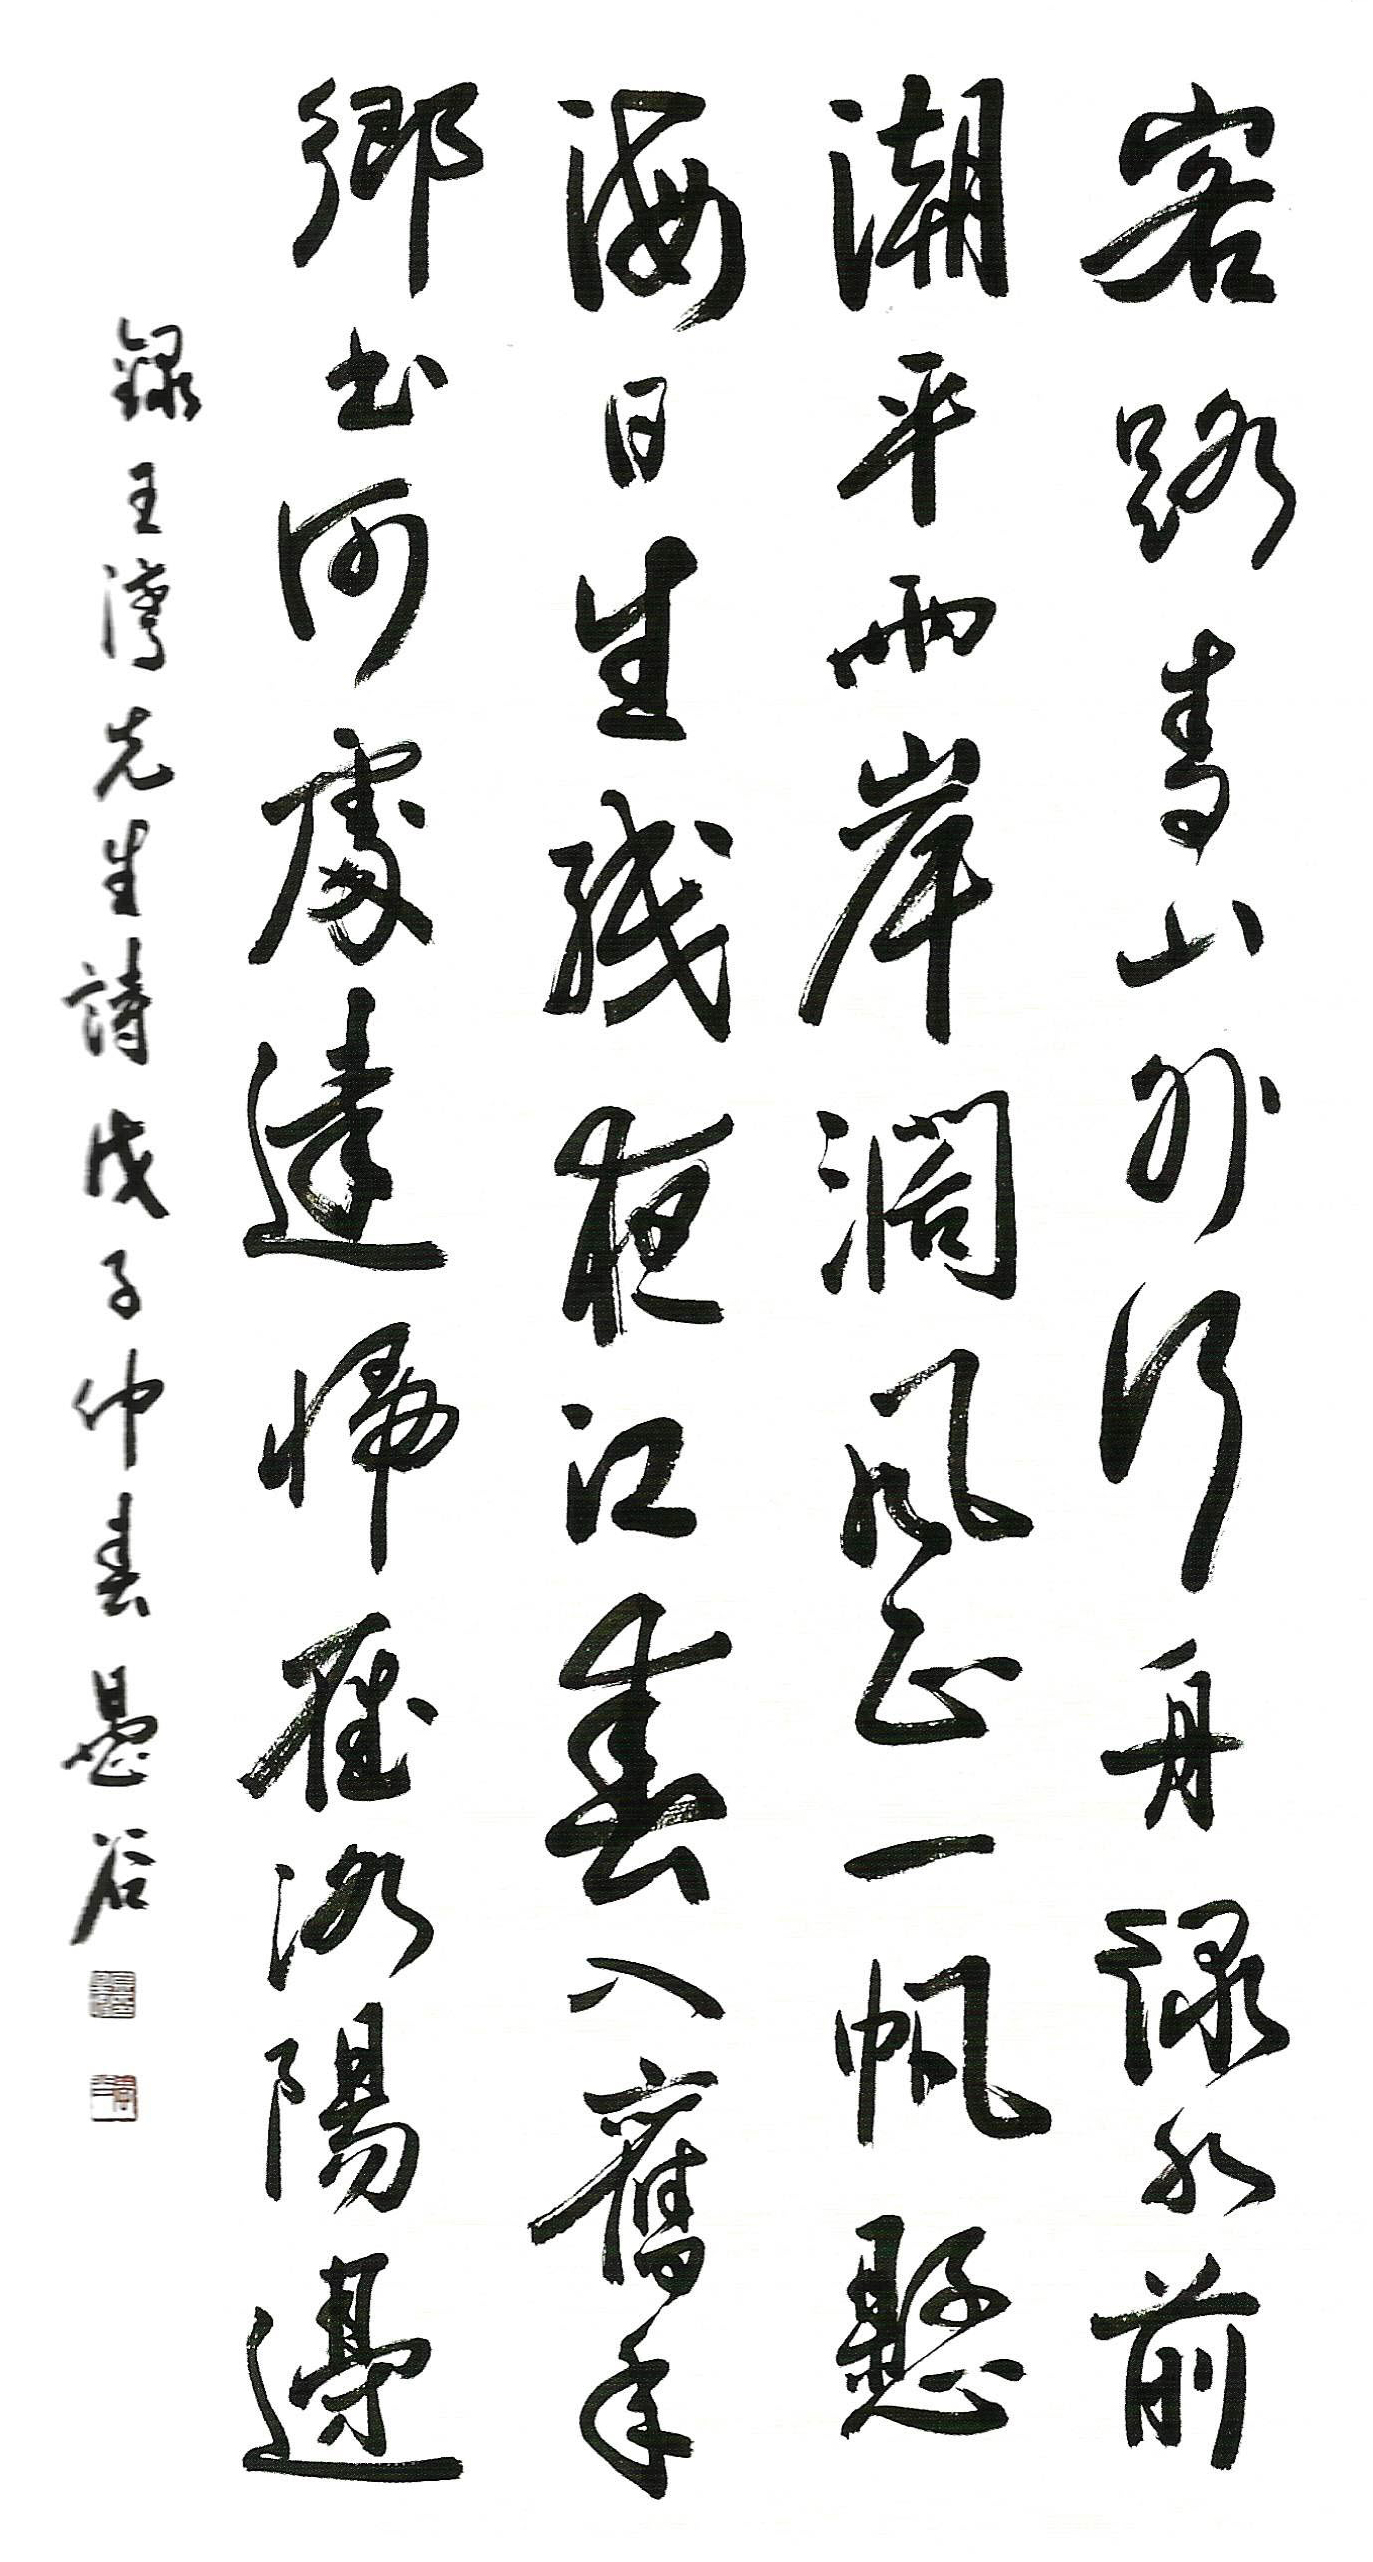 客路青山外行舟綠水前
潮平兩岸濶風正一帆懸
海日生殘夜江春入舊年
鄉書何處達歸雁洛陽邊
錄王灣先生詩戊子仲春愚谷